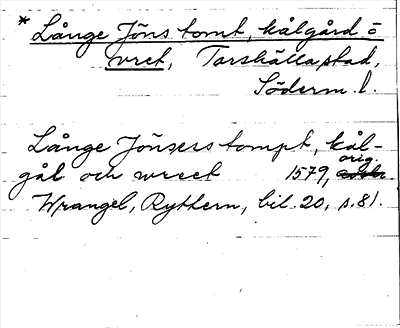 * Långe Jöns tomt, kålgård o
vret, Torshälla stad,
Söderm. l.
Långe Jönses tompt, kål-
gål och wreet 1579, orig.
Wrangel, Rythern, bil. 20, s. 81.